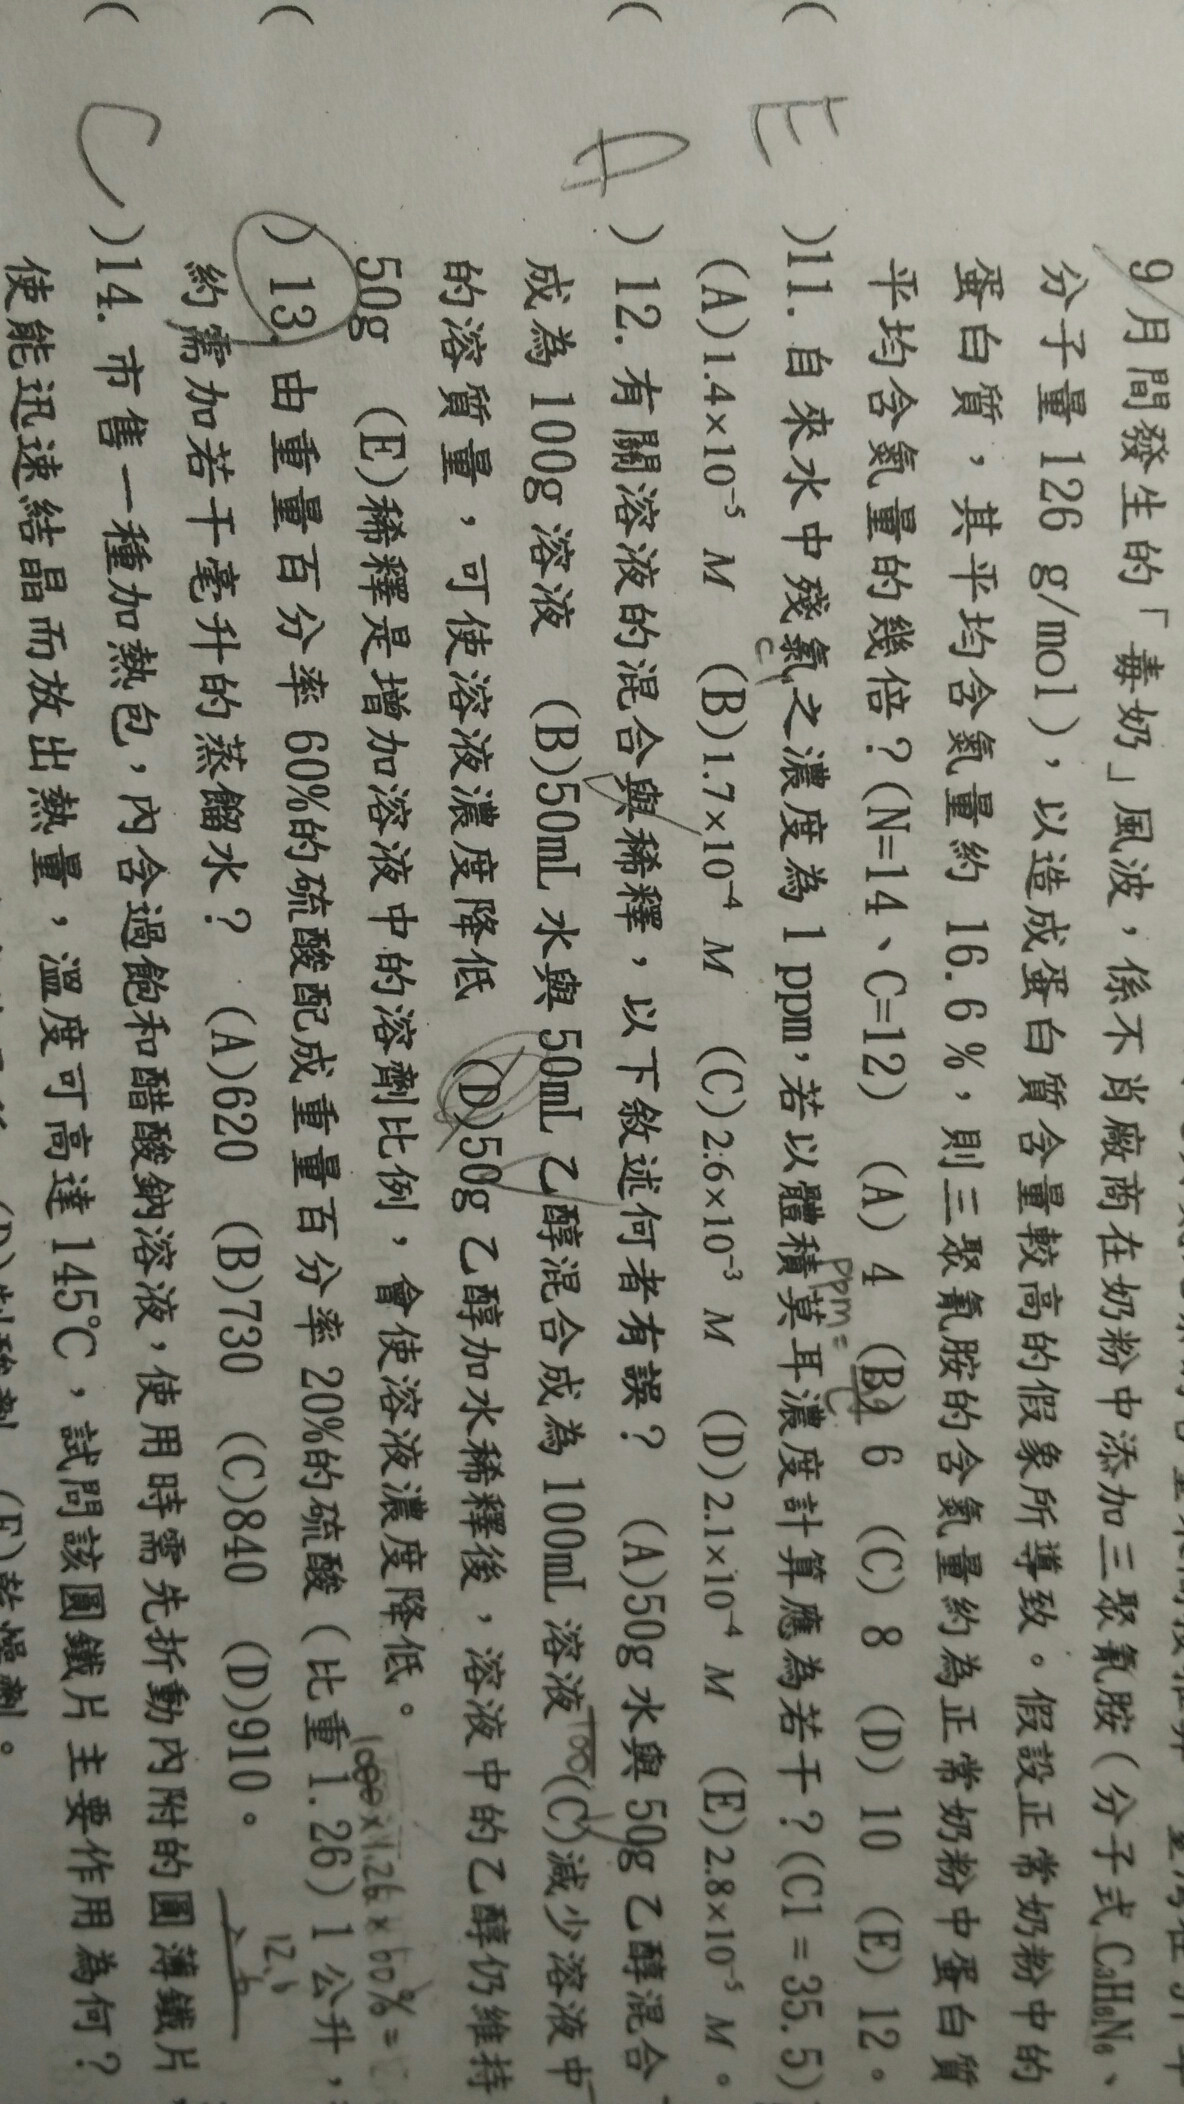 9月間發生的「毒奶」風波，係不肖廠商在奶粉中添加三聚氰胺(分子式C₃H₆N₆、
分子量 126 g/mol)，以造成蛋白質含量較高的假象所導致。假設正常奶粉中的
蛋白質，其平均含氮量約 16.6%，則三聚氰胺的含氮量約為正常奶粉中蛋白質
平均含氮量的幾倍？(N=14、C=12) (A) 4 (B) 6 (C) 8 (D) 10 (E) 12。
ppm=
( E )11. 自來水中殘氯之濃度為 1 ppm，若以體積莫耳濃度計算應為若干？(Cl = 35.5)
Cl
(A)1.4×10⁻⁵ M (B)1.7×10⁻⁴ M (C)2.6×10⁻³ M (D)2.1×10⁻⁴ M (E)2.8×10⁻⁵ M。
( A ) 12. 有關溶液的混合與稀釋，以下敘述何者有誤？ (A)50g 水與 50g 乙醇混合
成為 100g 溶液 (B)50mL 水與 50mL 乙醇混合成為 100mL 溶液 (C)減少溶液中
的溶質量，可使溶液濃度降低 (D)50g 乙醇加水稀釋後，溶液中的乙醇仍維持
50g (E)稀釋是增加溶液中的溶劑比例，會使溶液濃度降低。
1000×1.26×60%=
( ) 13. 由重量百分率 60%的硫酸配成重量百分率 20%的硫酸(比重 1.26) 1 公升，
12.6
約需加若干毫升的蒸餾水？ (A)620 (B)730 (C)840 (D)910。
( C )14. 市售一種加熱包，內含過飽和醋酸鈉溶液，使用時需先折動內附的圓薄鐵片，
使能迅速結晶而放出熱量，溫度可高達 145℃，試問該圓鐵片主要作用為何？
(D)制酸劑 (E)乾燥劑。